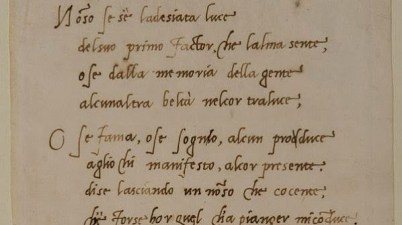 Nõso se s'è ladesiata luce
delsuo primo factor, che lalma sente,
ose dalla memoria della gente
alcunaltra beltà nelcor traluce,
O se fama, ose sognio, alcun produce
aglio chi manifesto, alcor presente.
dise lasciando un nõso che cocente,
chè forse hor quel cha pianger miconduce.